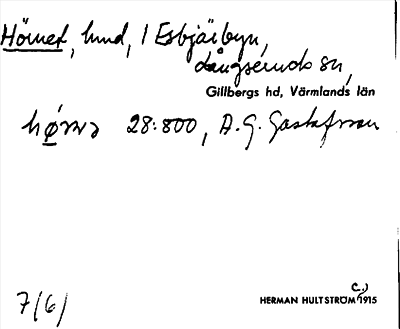 Hörnet, lund, 1 Esbjäibyn,
Långseruds sn,
Gillbergs hd, Värmlands län
28:800, A.G. Gustafsson
c.)
HERMAN HULTSTRÖM 1915
7/6)